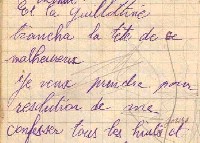 Et la guillotine
trancha la tête de ce
malheureux
Je veux prendre pour
resolution de me
confesser tous les huits